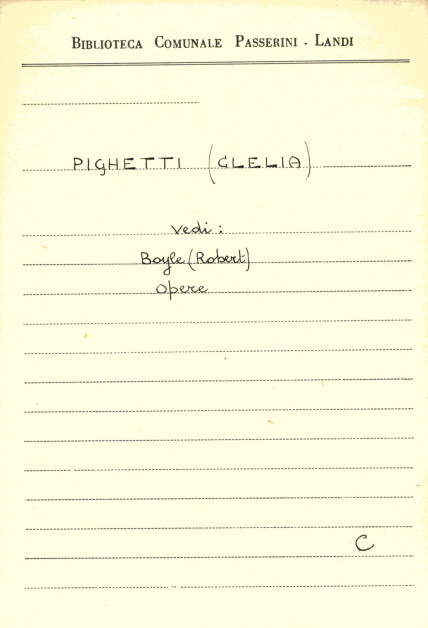 BIBLIOTECA COMUNALE PASSERINI - LANDI
PIGHETTI (CLELIA)
Vedi:
Boyle (Robert)
Opere
C